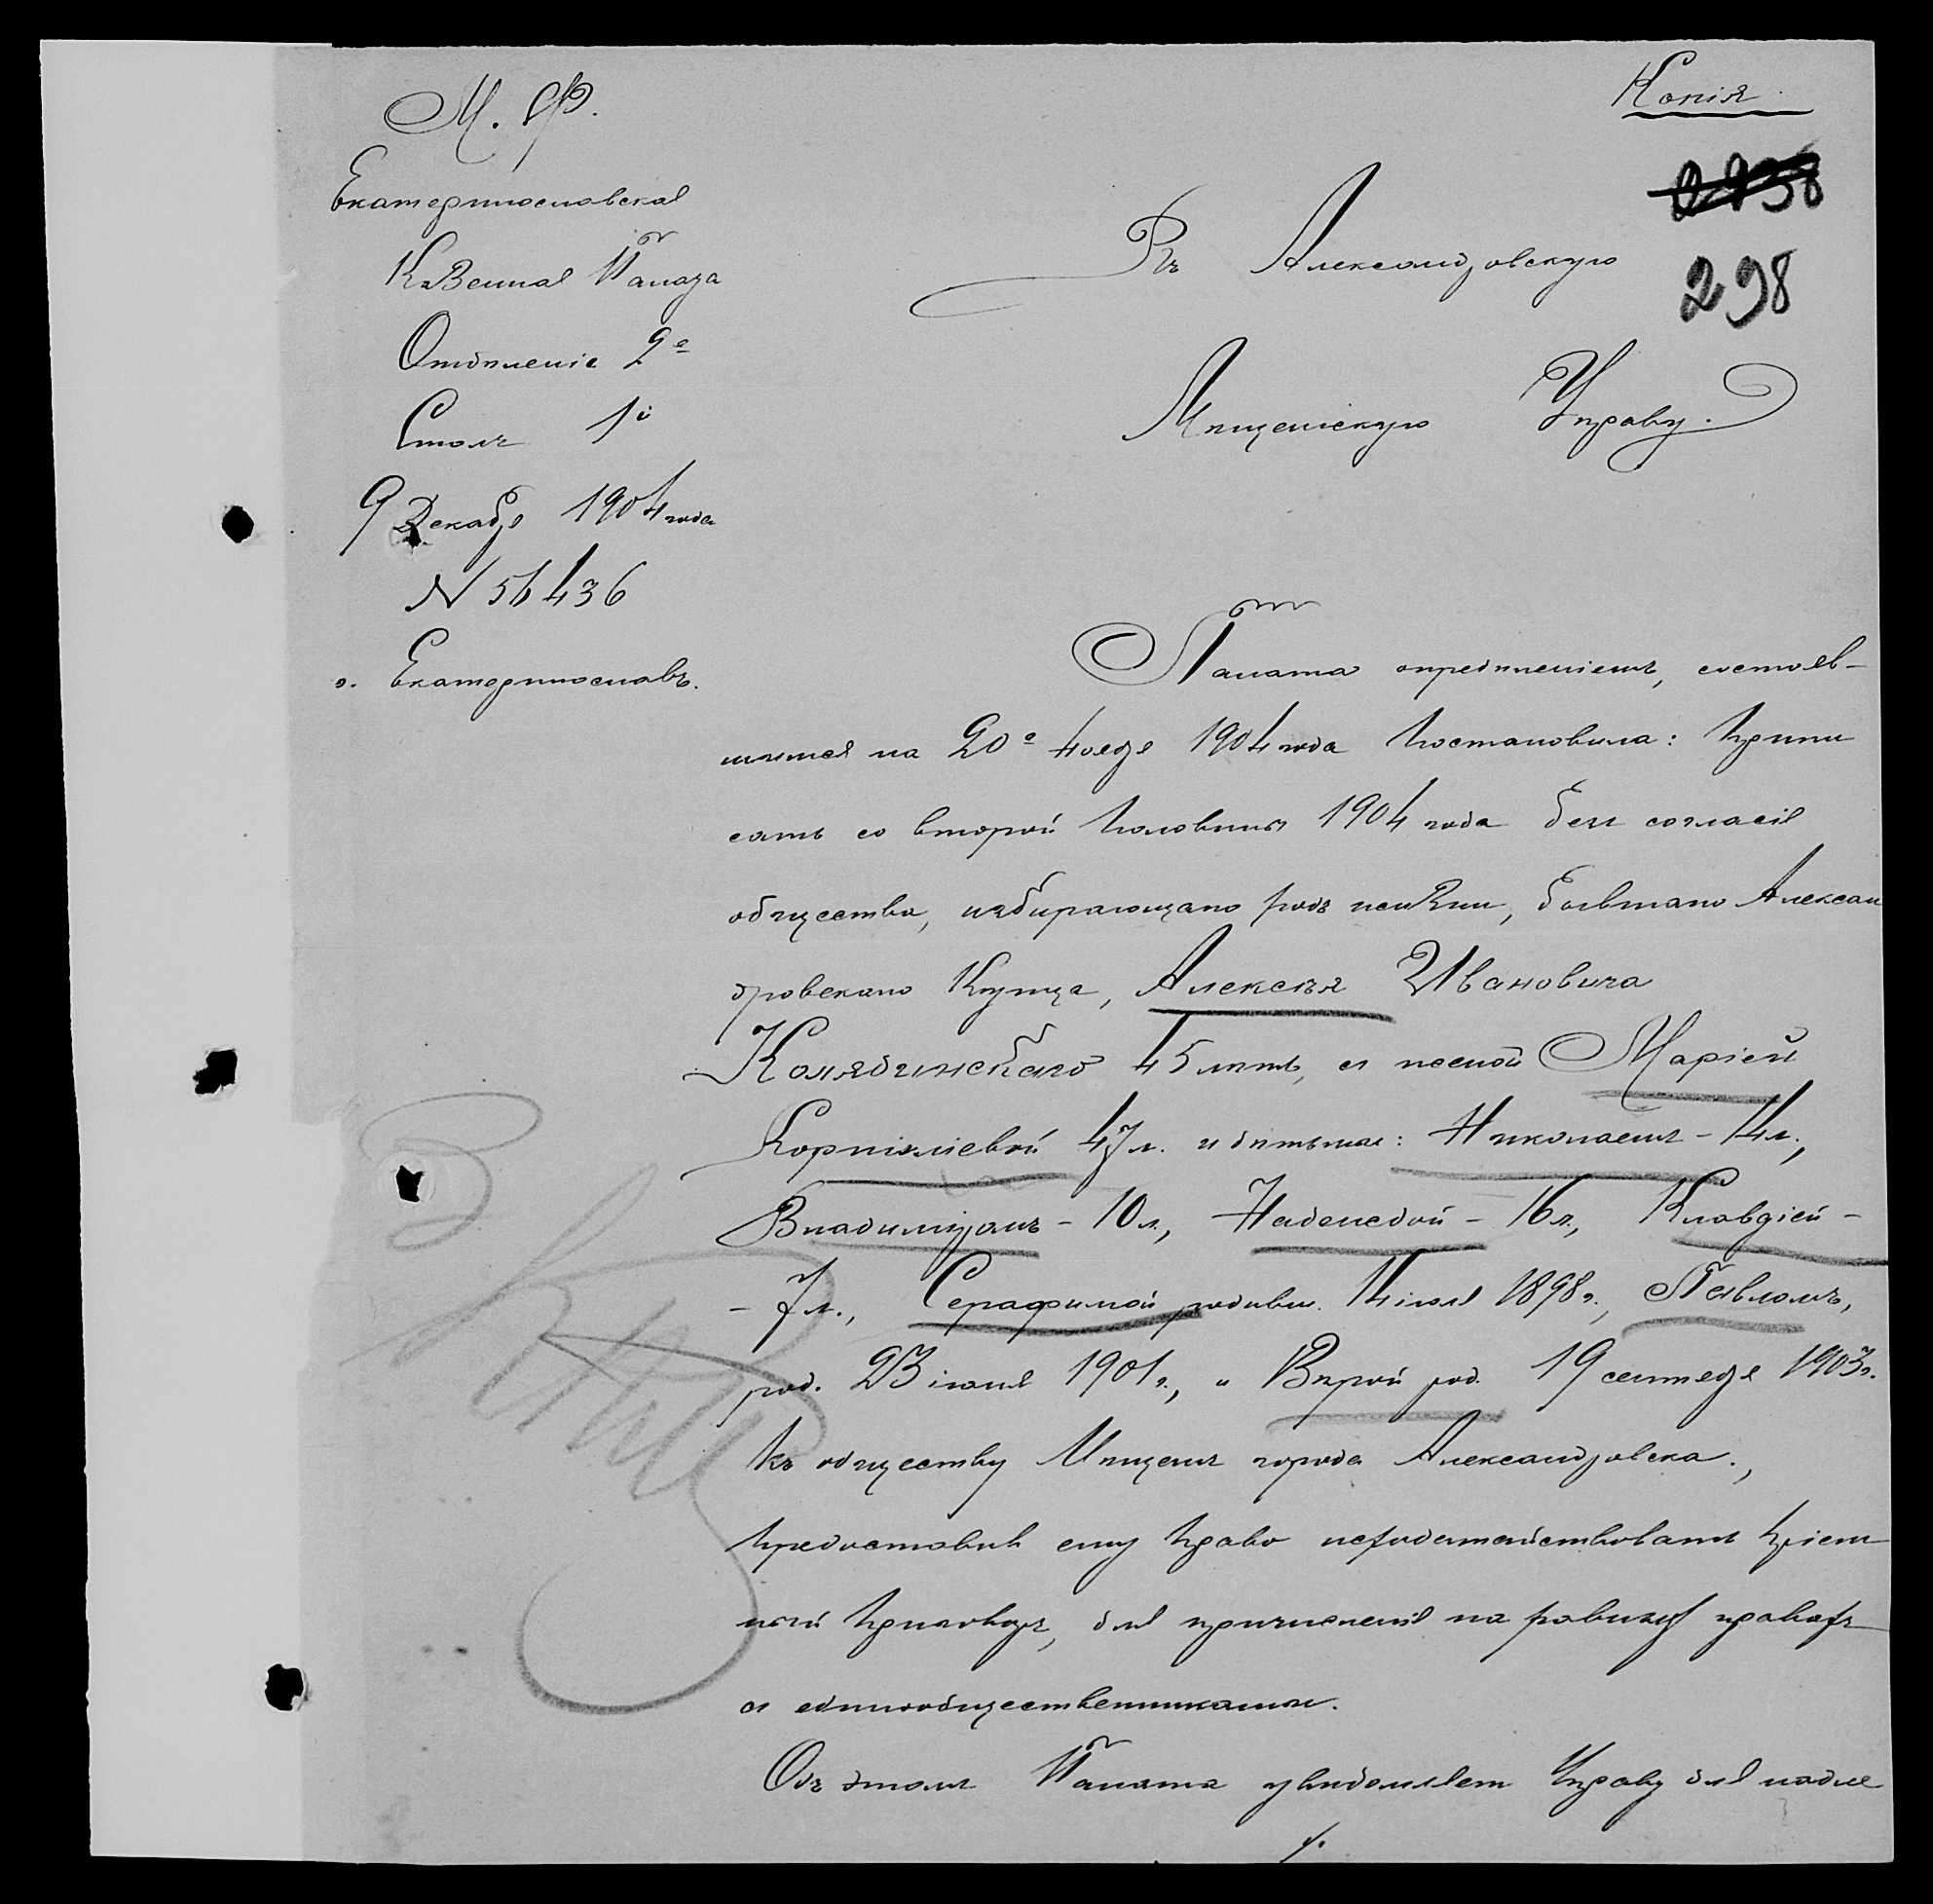 Копія.
М. Ф.
Екатеринославская
Казенная Палата
Отдѣленіе 2е
Столъ 1й
9 Декабр 1904 года
N 56436
г. Екатеринославъ.
298
Въ Александровскую
Мѣщанскую Управу.
Палата опредѣленіемъ, состояв-
шимся на 20е Ноября 1904 года постановила: припи
сать со второй половины 1904 года безъ согласія
общества, избирающаго родъ жизни, бывшаго Алексан
дровскаго Купца, Алексѣя Ивановича
45 лѣтъ, съ женой Маріей
Корниліевой 47 л. и дѣтьми: Николаемъ - 14 л.,
Владиміромъ - 10 л., Надеждой - 16 л., Клавдіей -
- 7 л., Серафимой родивш. 14 іюля 1898 г., Павломъ,
род. 23 іюня 1901 г., и Вѣрой род. 19 сентября 1903 г.
къ обществу Мѣщанъ города Александровска.,
предоставивъ ему право исходатайствовать пріем
ный приговоръ, для причисленія на равныхъ правахъ
съ единообщественниками.
Объ этомъ Палата увѣдомляетъ Управу для надле